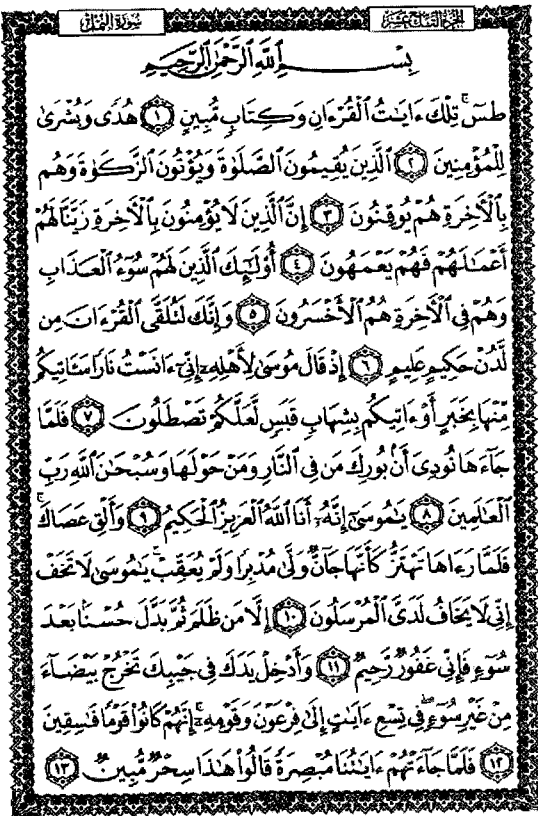 سورة النمل
الجزء التاسع عشر
بِسْمِ ٱللَّهِ ٱلرَّحْمَٰنِ ٱلرَّحِيمِ
طسٓ ۚ تِلْكَ ءَايَٰتُ ٱلْقُرْءَانِ وَكِتَابٍ مُّبِينٍ ١ هُدًى وَبُشْرَىٰ
لِلْمُؤْمِنِينَ ٢ ٱلَّذِينَ يُقِيمُونَ ٱلصَّلَوٰةَ وَيُؤْتُونَ ٱلزَّكَوٰةَ وَهُم
بِٱلْءَاخِرَةِ هُمْ يُوقِنُونَ ٣ إِنَّ ٱلَّذِينَ لَا يُؤْمِنُونَ بِٱلْءَاخِرَةِ زَيَّنَّا لَهُمْ
أَعْمَٰلَهُمْ فَهُمْ يَعْمَهُونَ ٤ أُو۟لَٰٓئِكَ ٱلَّذِينَ لَهُمْ سُوٓءُ ٱلْعَذَابِ
وَهُمْ فِى ٱلْءَاخِرَةِ هُمُ ٱلْأَخْسَرُونَ ٥ وَإِنَّكَ لَتُلَقَّى ٱلْقُرْءَانَ مِن
لَّدُنْ حَكِيمٍ عَلِيمٍ ٦ إِذْ قَالَ مُوسَىٰ لِأَهْلِهِۦٓ إِنِّىٓ ءَانَسْتُ نَارًا سَـَٔاتِيكُم
مِّنْهَا بِخَبَرٍ أَوْ ءَاتِيكُم بِشِهَابٍ قَبَسٍ لَّعَلَّكُمْ تَصْطَلُونَ ٧ فَلَمَّا
جَآءَهَا نُودِىَ أَنۢ بُورِكَ مَن فِى ٱلنَّارِ وَمَنْ حَوْلَهَا وَسُبْحَٰنَ ٱللَّهِ رَبِّ
ٱلْعَٰلَمِينَ ٨ يَٰمُوسَىٰٓ إِنَّهُۥٓ أَنَا ٱللَّهُ ٱلْعَزِيزُ ٱلْحَكِيمُ ٩ وَأَلْقِ عَصَاكَ ۚ
فَلَمَّا رَءَاهَا تَهْتَزُّ كَأَنَّهَا جَآنٌّ وَلَّىٰ مُدْبِرًا وَلَمْ يُعَقِّبْ ۚ يَٰمُوسَىٰ لَا تَخَفْ
إِنِّى لَا يَخَافُ لَدَىَّ ٱلْمُرْسَلُونَ ١٠ إِلَّا مَن ظَلَمَ ثُمَّ بَدَّلَ حُسْنًۢا بَعْدَ
سُوٓءٍ فَإِنِّى غَفُورٌ رَّحِيمٌ ١١ وَأَدْخِلْ يَدَكَ فِى جَيْبِكَ تَخْرُجْ بَيْضَآءَ
مِنْ غَيْرِ سُوٓءٍ ۖ فِى تِسْعِ ءَايَٰتٍ إِلَىٰ فِرْعَوْنَ وَقَوْمِهِۦٓ ۚ إِنَّهُمْ كَانُوا۟ قَوْمًا فَٰسِقِينَ
١٢ فَلَمَّا جَآءَتْهُمْ ءَايَٰتُنَا مُبْصِرَةً قَالُوا۟ هَٰذَا سِحْرٌ مُّبِينٌ ١٣